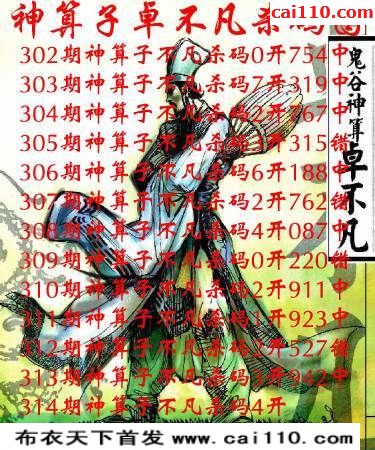 cai110.com
神算子卓不凡杀码图
鬼谷神算
卓不凡
302期神算子不凡杀码0开754中
303期神算子不凡杀码7开319中
304期神算子不凡杀码2开767中
305期神算子不凡杀码3开315错
306期神算子不凡杀码6开188中
307期神算子不凡杀码2开762错
308期神算子不凡杀码4开087中
309期神算子不凡杀码0开220错
310期神算子不凡杀码2开911中
311期神算子不凡杀码1开923中
312期神算子不凡杀码2开527错
313期神算子不凡杀码3开942中
314期神算子不凡杀码4开
布衣天下首发 www.cai110.com